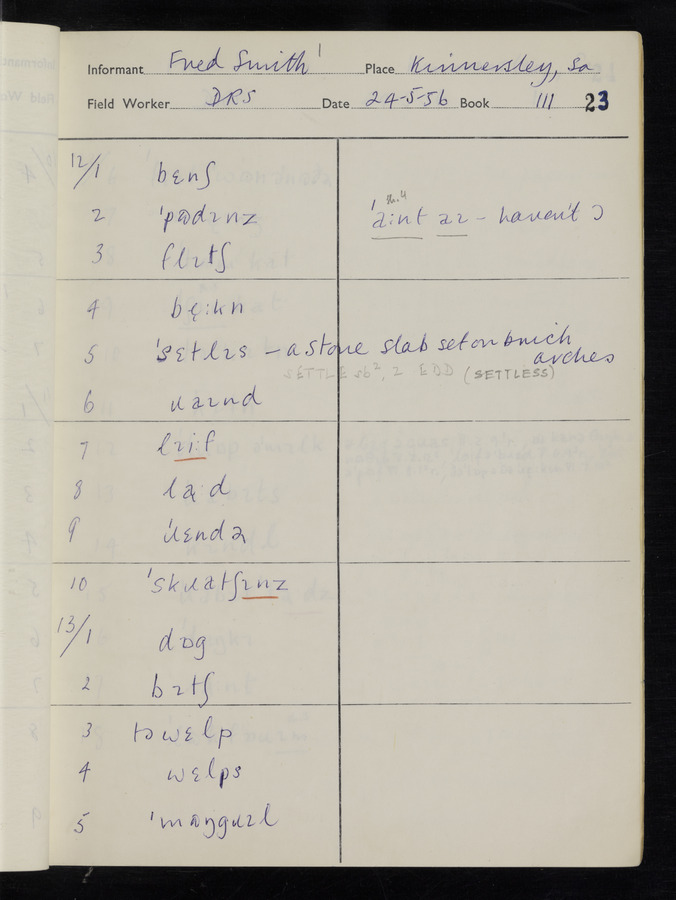 Informant Fred Smith 1 Place Kinnersley, Sa
Field Worker DRS Date 24-5-56 Book III 23
12/1 bɛnʃ
2 ˈpɒdɪnz
ˈaːɪnt əɪ - haven't I
3 flɪtʃ
4 bęːkn
5 ˈsɛtlɪs – a stone slab set on brick
arches
SETTLE sb², 2 EDD (SETTLESS)
6
7 lɪiːf
8 ląːd
9 ˈɹɛndə
10 ˈskɹatʃɪnz
13/1 dɒg
2 bɪtʃ
3 tə wɛlp
4 wɛlps
5 ˈmɒŋgɹɪl